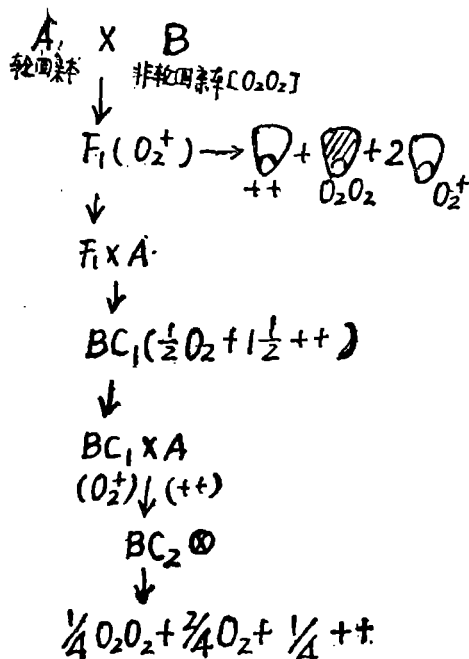 A × B
轮回亲本 非轮回亲本[O₂O₂]
↓
F₁(O₂⁺) → + + 2
++ O₂O₂ O₂⁺
↓
F₁×A
↓
BC₁(½O₂+1½++)
↓
BC₁×A
(O₂⁺)↓(++)
BC₂⊗
↓
¼O₂O₂+2/4O₂+¼++